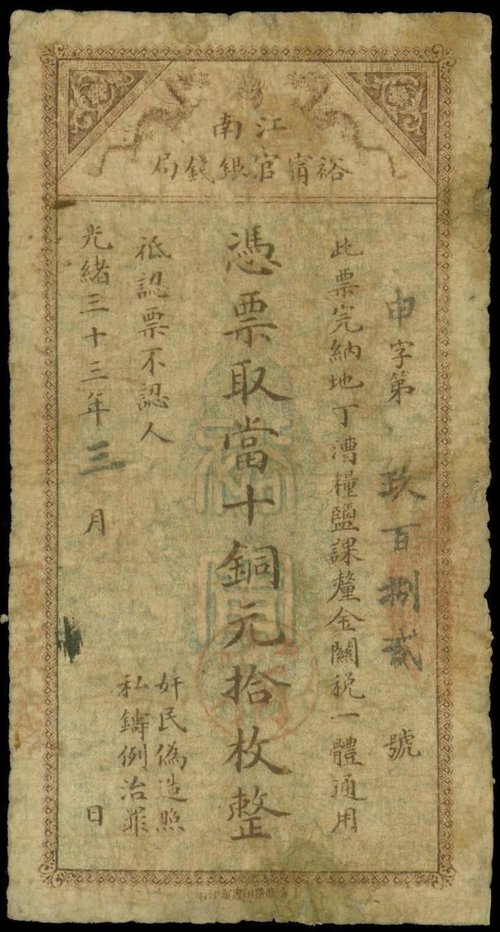 江南
裕甯官銀錢局
申字第 玖百捌貳 號
此票完納地丁漕糧鹽課釐金關稅一體通用
憑票取當十銅元拾枚整
祇認票不認人
奸民偽造照
私鑄例治罪
光緒三十三年三月 日